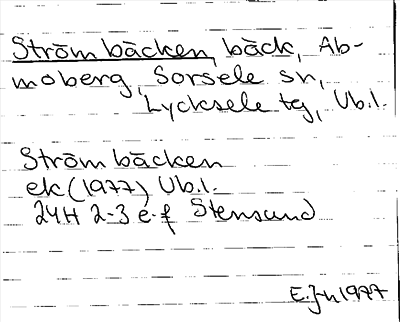 Strömbäcken, bäck, Ab-
moberg, Sorsele sn,
Lycksele tg, Vb.l.
Strömbäcken
ek (1977) Vb.l.
24H 2-3 e-f Stensund
E. J-n 1977